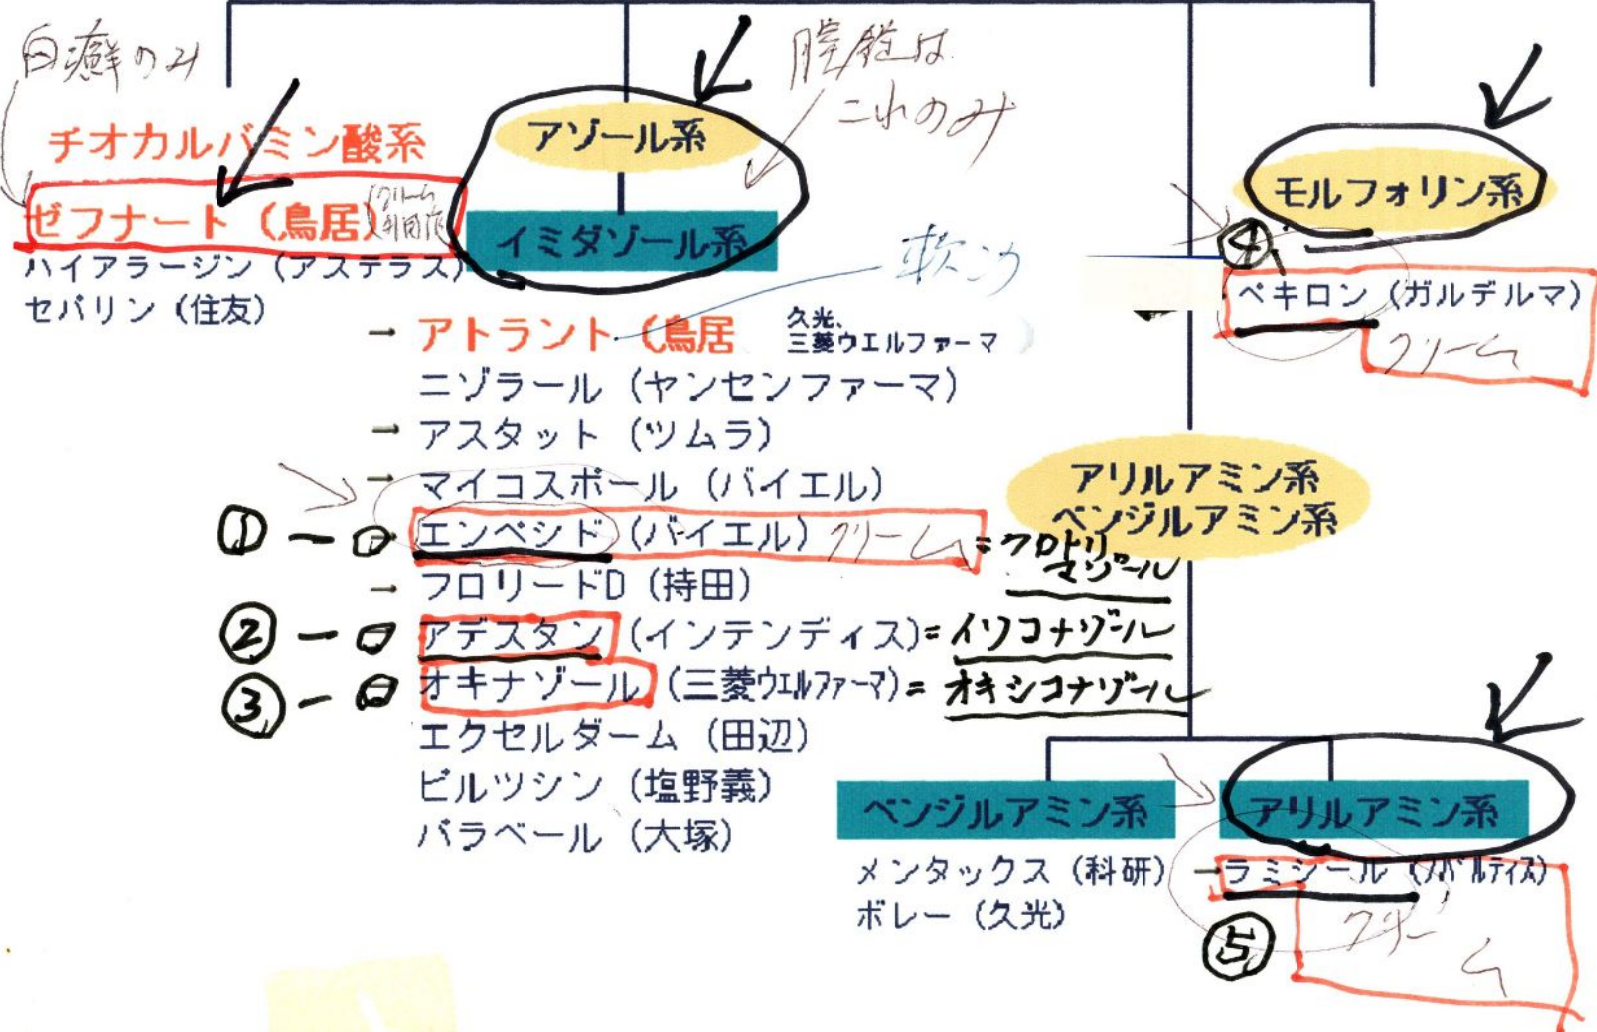 白癬のみ
膣錠は
これのみ
チオカルバミン酸系
ゼフナート（鳥居）
クリーム
ハイアラージン（アステラス）
セバリン（住友）
アゾール系
イミダゾール系
軟こう
→ アトラント（鳥居 久光、三菱ウエルファーマ）
ニゾラール（ヤンセンファーマ）
→ アスタット（ツムラ）
→ マイコスポール（バイエル）
① エンペシド（バイエル） クリーム = クロトリマゾール
→ フロリードD（持田）
② アデスタン（インテンディス）= イソコナゾール
③ オキナゾール（三菱ウエルファーマ）= オキシコナゾール
エクセルダーム（田辺）
ビルツシン（塩野義）
パラベール（大塚）
モルフォリン系
④
ペキロン（ガルデルマ）
クリーム
アリルアミン系
ベンジルアミン系
ベンジルアミン系
メンタックス（科研）
ボレー（久光）
アリルアミン系
→ラミシール（ノバルティス）
⑤
クリーム